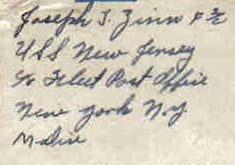 Joseph J. Zinn F 3/c
USS New Jersey
c/o Fleet Post Office
New York N.Y.